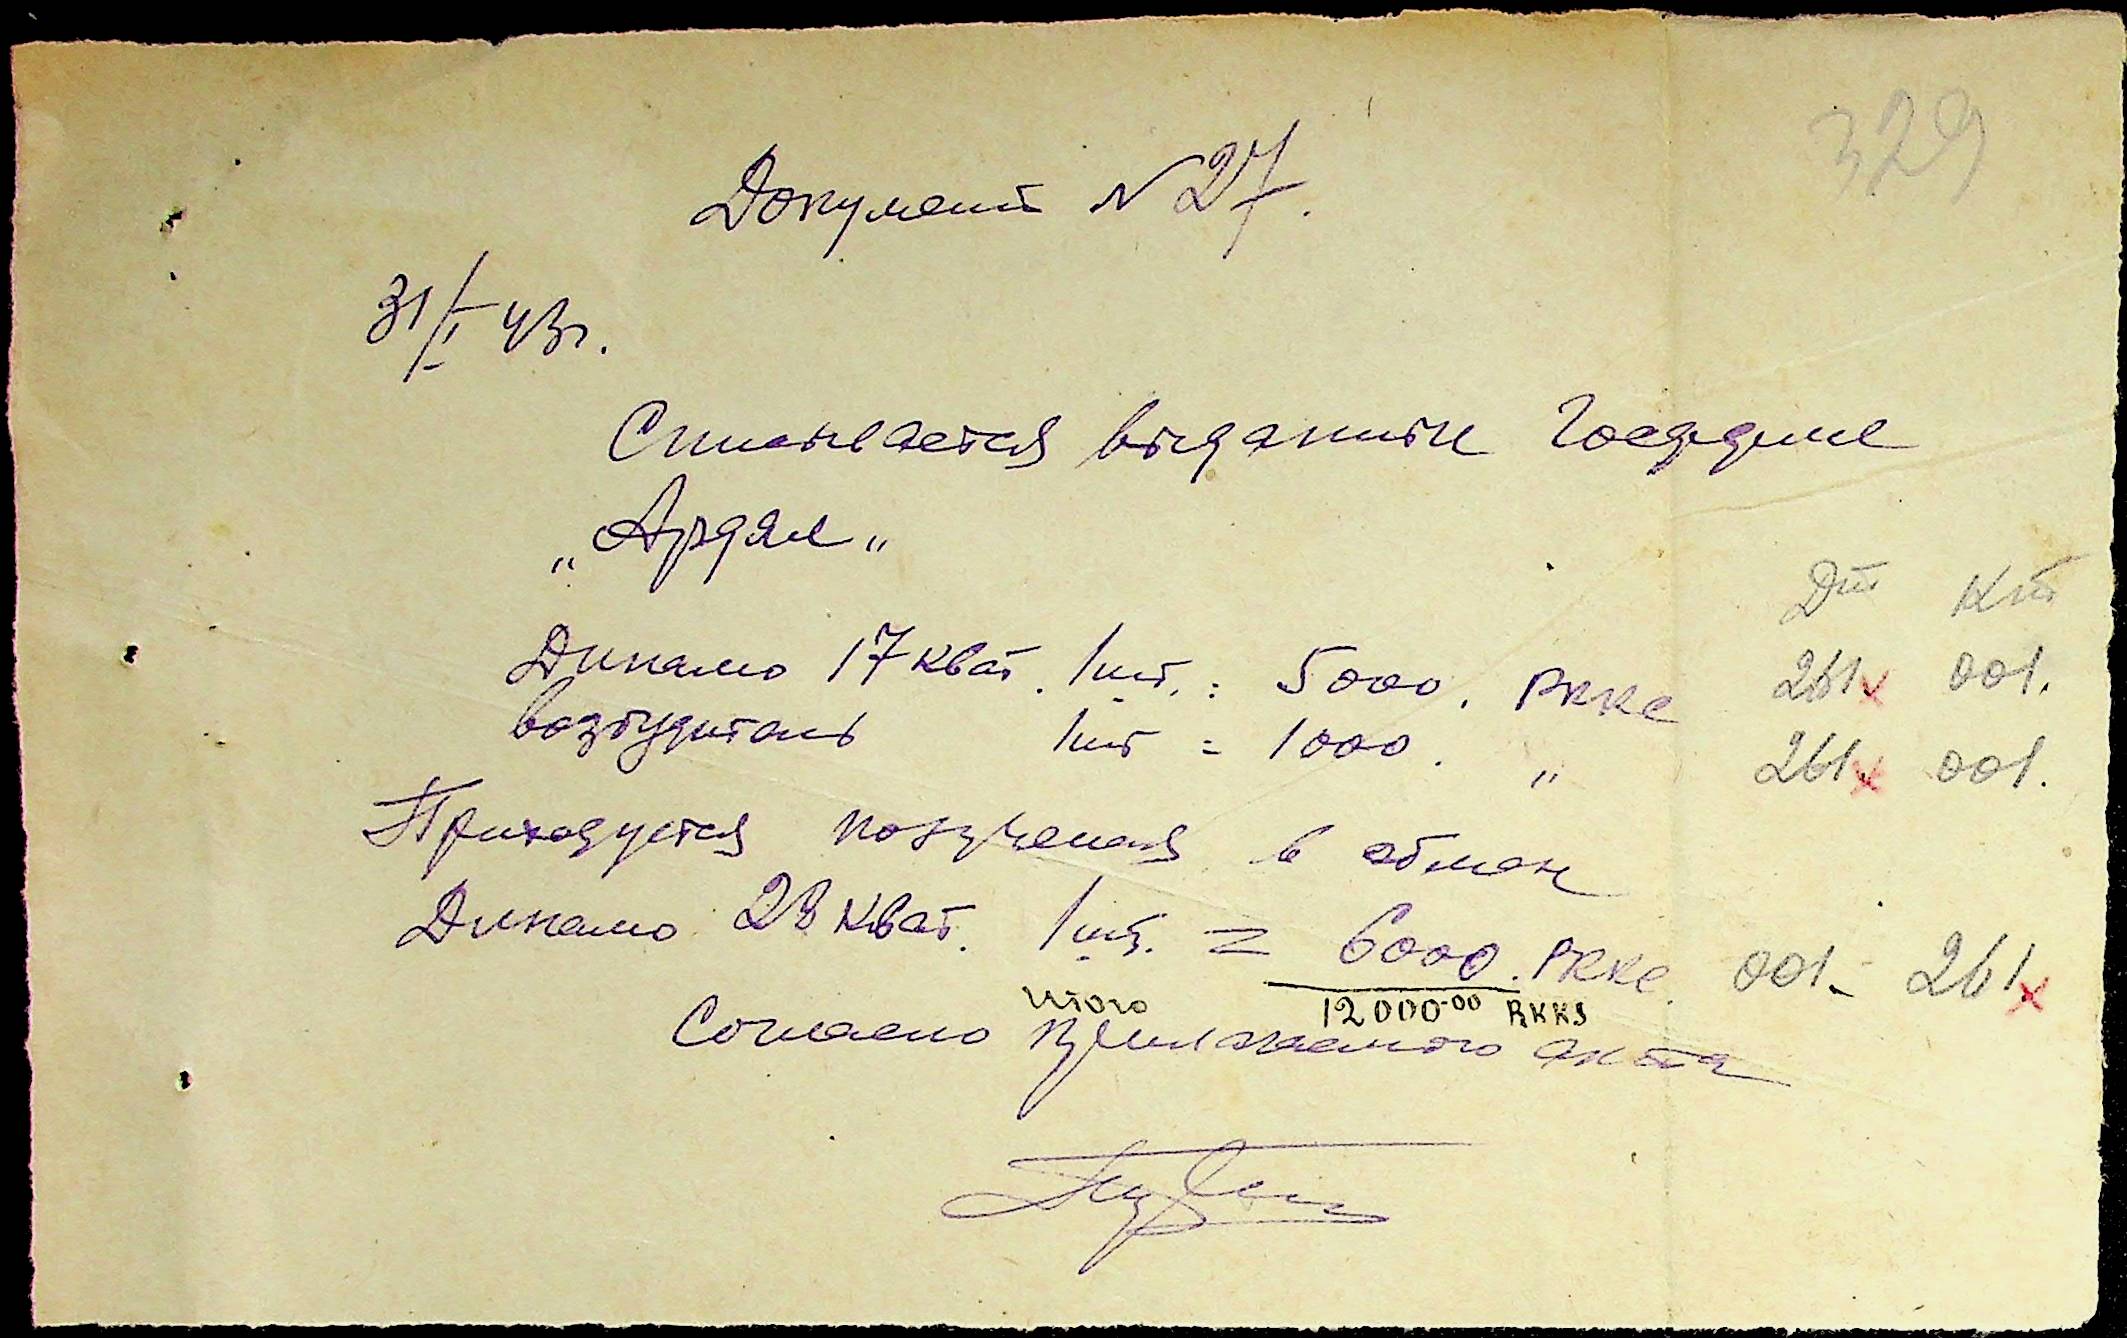 329
Документ N 27.
31/I 43г.
Списывается выданные
„Ардял„
Дт Кт
Динамо 17 кват. 1шт. = 5000. РККС 261 х 001.
возбудитель 1шт = 1000. „ 261 х 001.
Приходуется полученая в обмен
Динамо 28 кват. 1шт. = 6000. РККС. 001 - 261 х
итого 12000-00 RKKS
Согласно прилагаемого акта